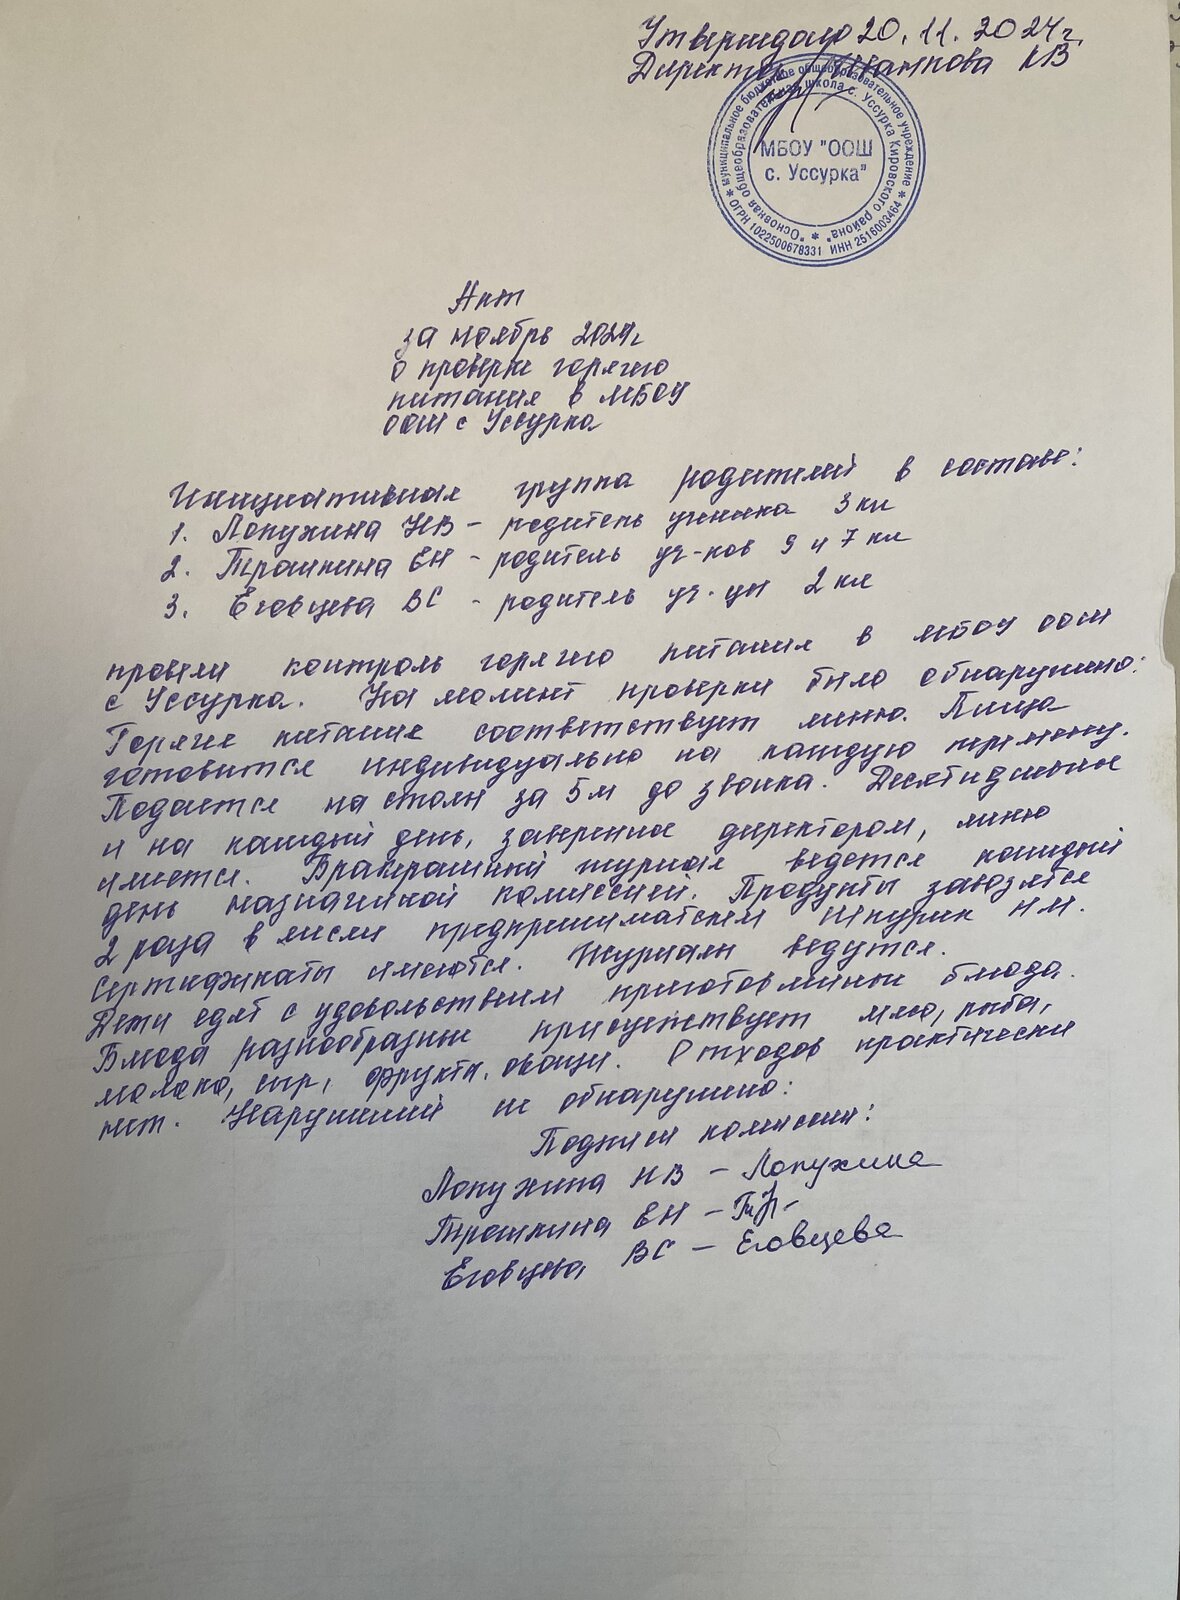 Утверждаю 20.11.2024г.
Директор Шампова КВ
муниципальное бюджетное общеобразовательное учреждение * ОГРН 1022500678331 ИНН 2516003464 *
"Основная общеобразовательная школа с. Уссурка Кировского района" *
МБОУ "ООШ
с. Уссурка"
Акт
за ноябрь 2024г
о проверке горячего
питания в МБОУ
ООШ с Уссурка
Инициативная группа родителей в составе:
1. Лопухина НВ - родитель ученика 3 кл
2. Трашкина ЕН - родитель уч-ков 9 и 7 кл
3. Еговцева ВС - родитель уч-цы 2 кл
провели контроль горячего питания в МБОУ ООШ
с Уссурка. На момент проверки было обнаружено:
Горячее питание соответствует меню. Пища
готовится индивидуально на каждую перемену.
Подается на столы за 5м до звонка. Десятидневное
и на каждый день, заверенное директором, меню
имеется. Бракеражный журнал ведется каждый
день назначенной комиссией. Продукты завозятся
2 раза в месяц предпринимателем Шкурик НМ.
Сертификаты имеются. Журналы ведутся.
Дети едят с удовольствием приготовленные блюда.
Блюда разнообразные присутствует мясо, рыба,
молоко, сыр, фрукты, овощи. Отходов практически
нет. Нарушений не обнаружено:
Подписи комиссии:
Лопухина НВ - Лопухина
Трашкина ЕН -
Еговцева ВС - Еговцева